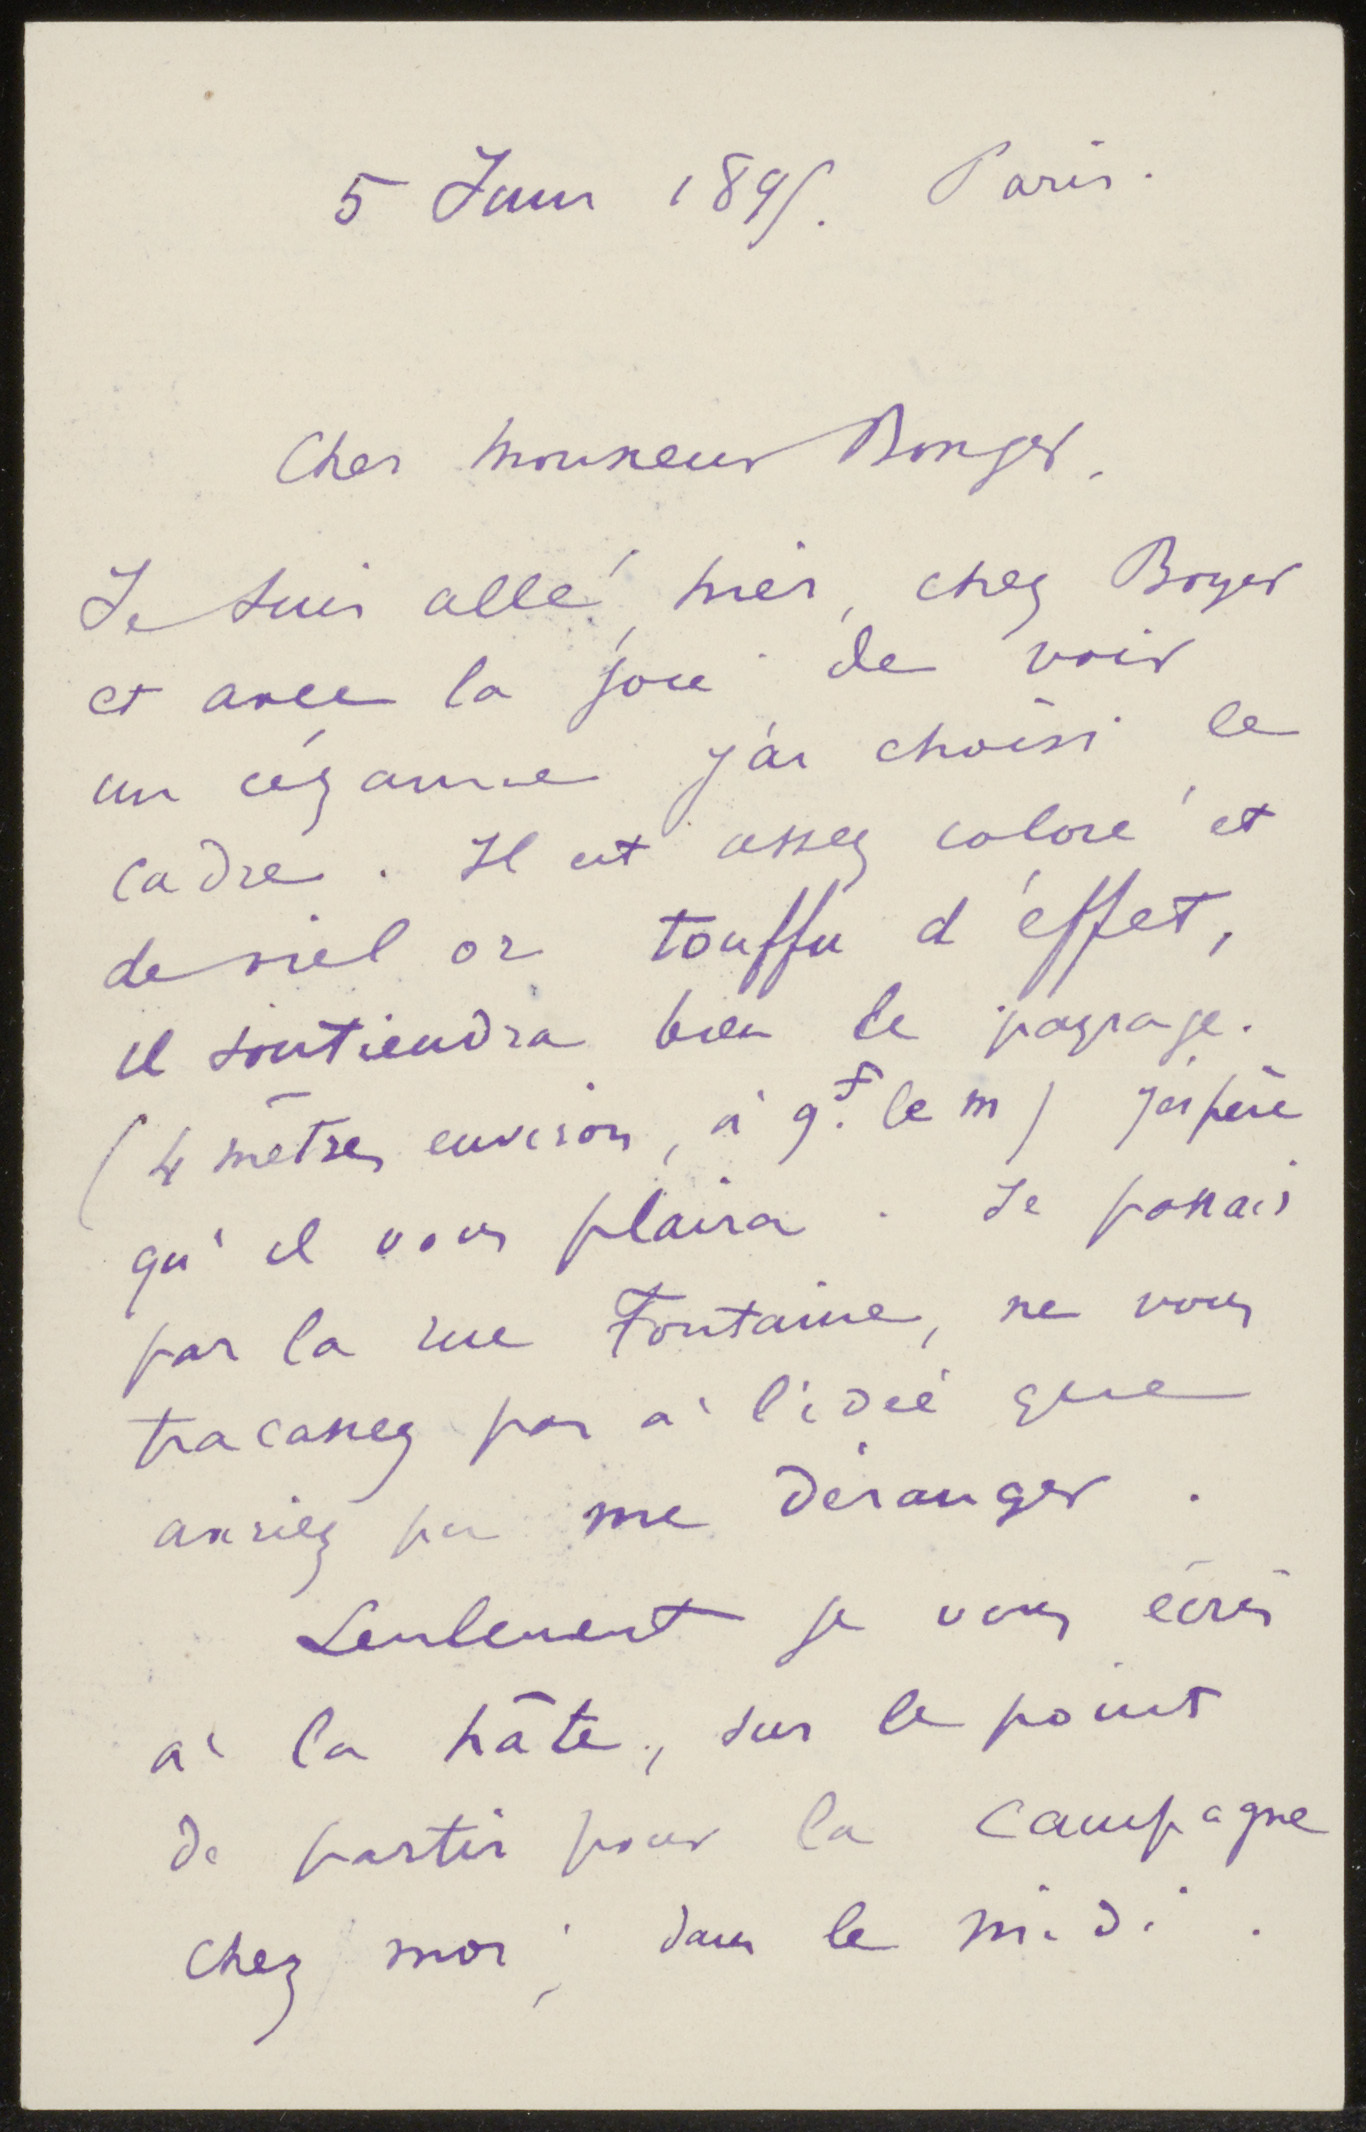 5 Juin 1895. Paris.
Cher monsieur Bonger.
Je suis allé, hier, chez Boyer
et avec la joie de voir
un cézanne j'ai choisi le
cadre. Il est assez coloré et
de vieil or touffu d'effet,
il soutiendra bien le paysage.
(4 mètres environ, à 9.f le m) j'espère
qu'il vous plaira. Je passais
par la rue Fontaine, ne vous
tracassez pas à l'idée que
auriez pu me déranger.
Seulement je vous écris
à la hâte, sur le point
de partir pour la campagne
chez moi, dans le midi.